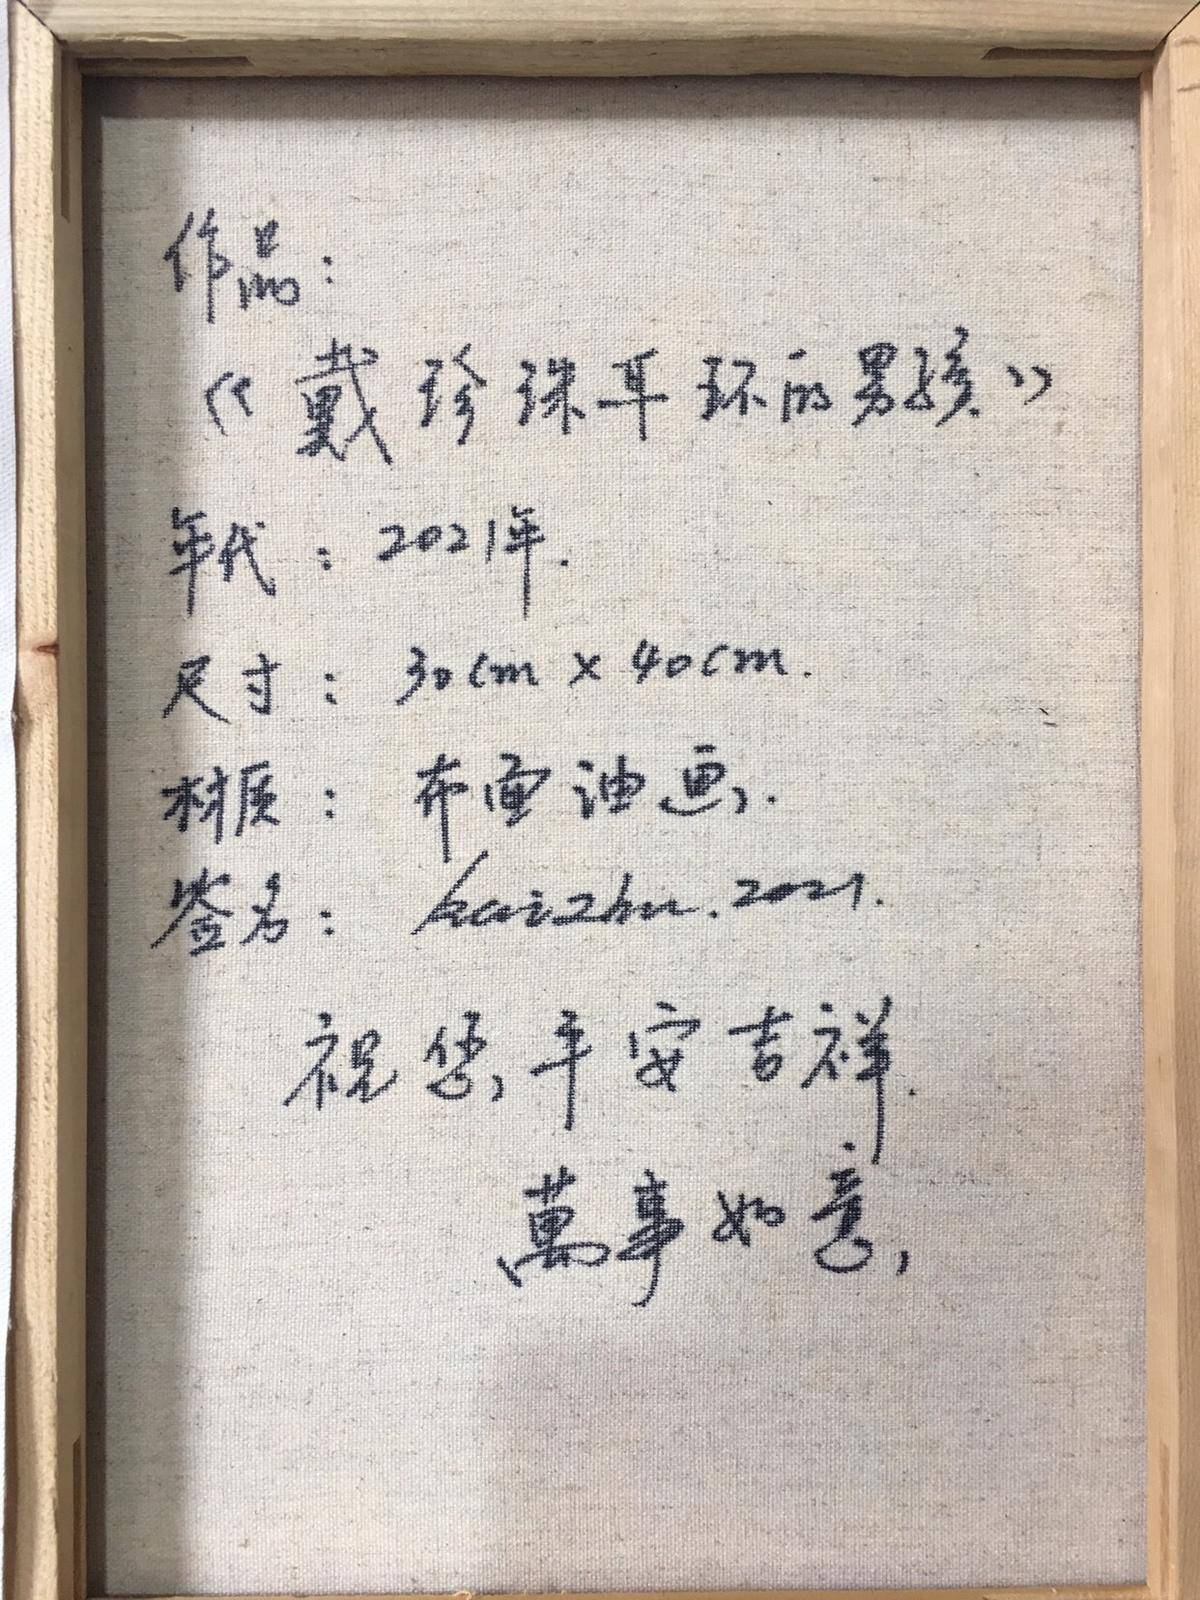 作品：
《戴珍珠耳环的男孩》
年代：2021年.
尺寸：30cm x 40cm.
材质：布面油画.
签名：kaizhu.2021.
祝您平安吉祥.
萬事如意,